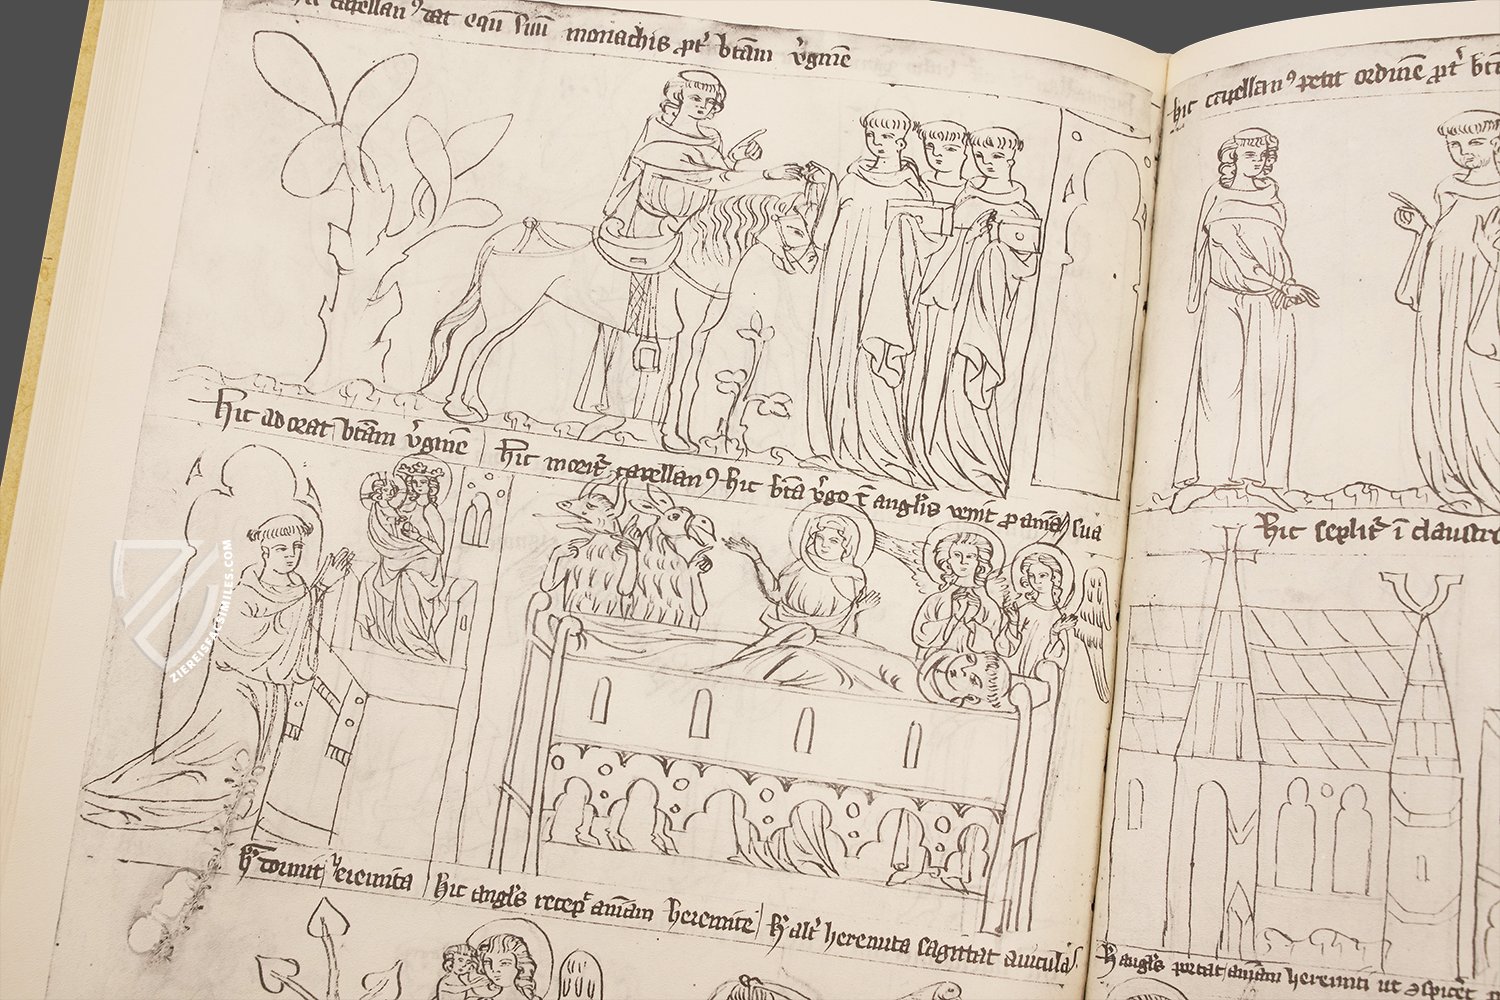 hic capellan⁹ dat equū suū monachis ꝓpt' btām v'gīnē
hic capellan⁹ petit ordinē ꝓpt' btā
hic adorat btām v'gīnē | hic morit' capellan⁹ hic bta v'go ī angl'is venit ꝓ anīa sua
hic sepelit' ī claustro
h' dormit heremita | hic angl's recep' anīam heremite | h' alt' heremita sagittat avicula
h' angl's portat anīam heremiti ut
ZIEREISFACSIMILES.COM